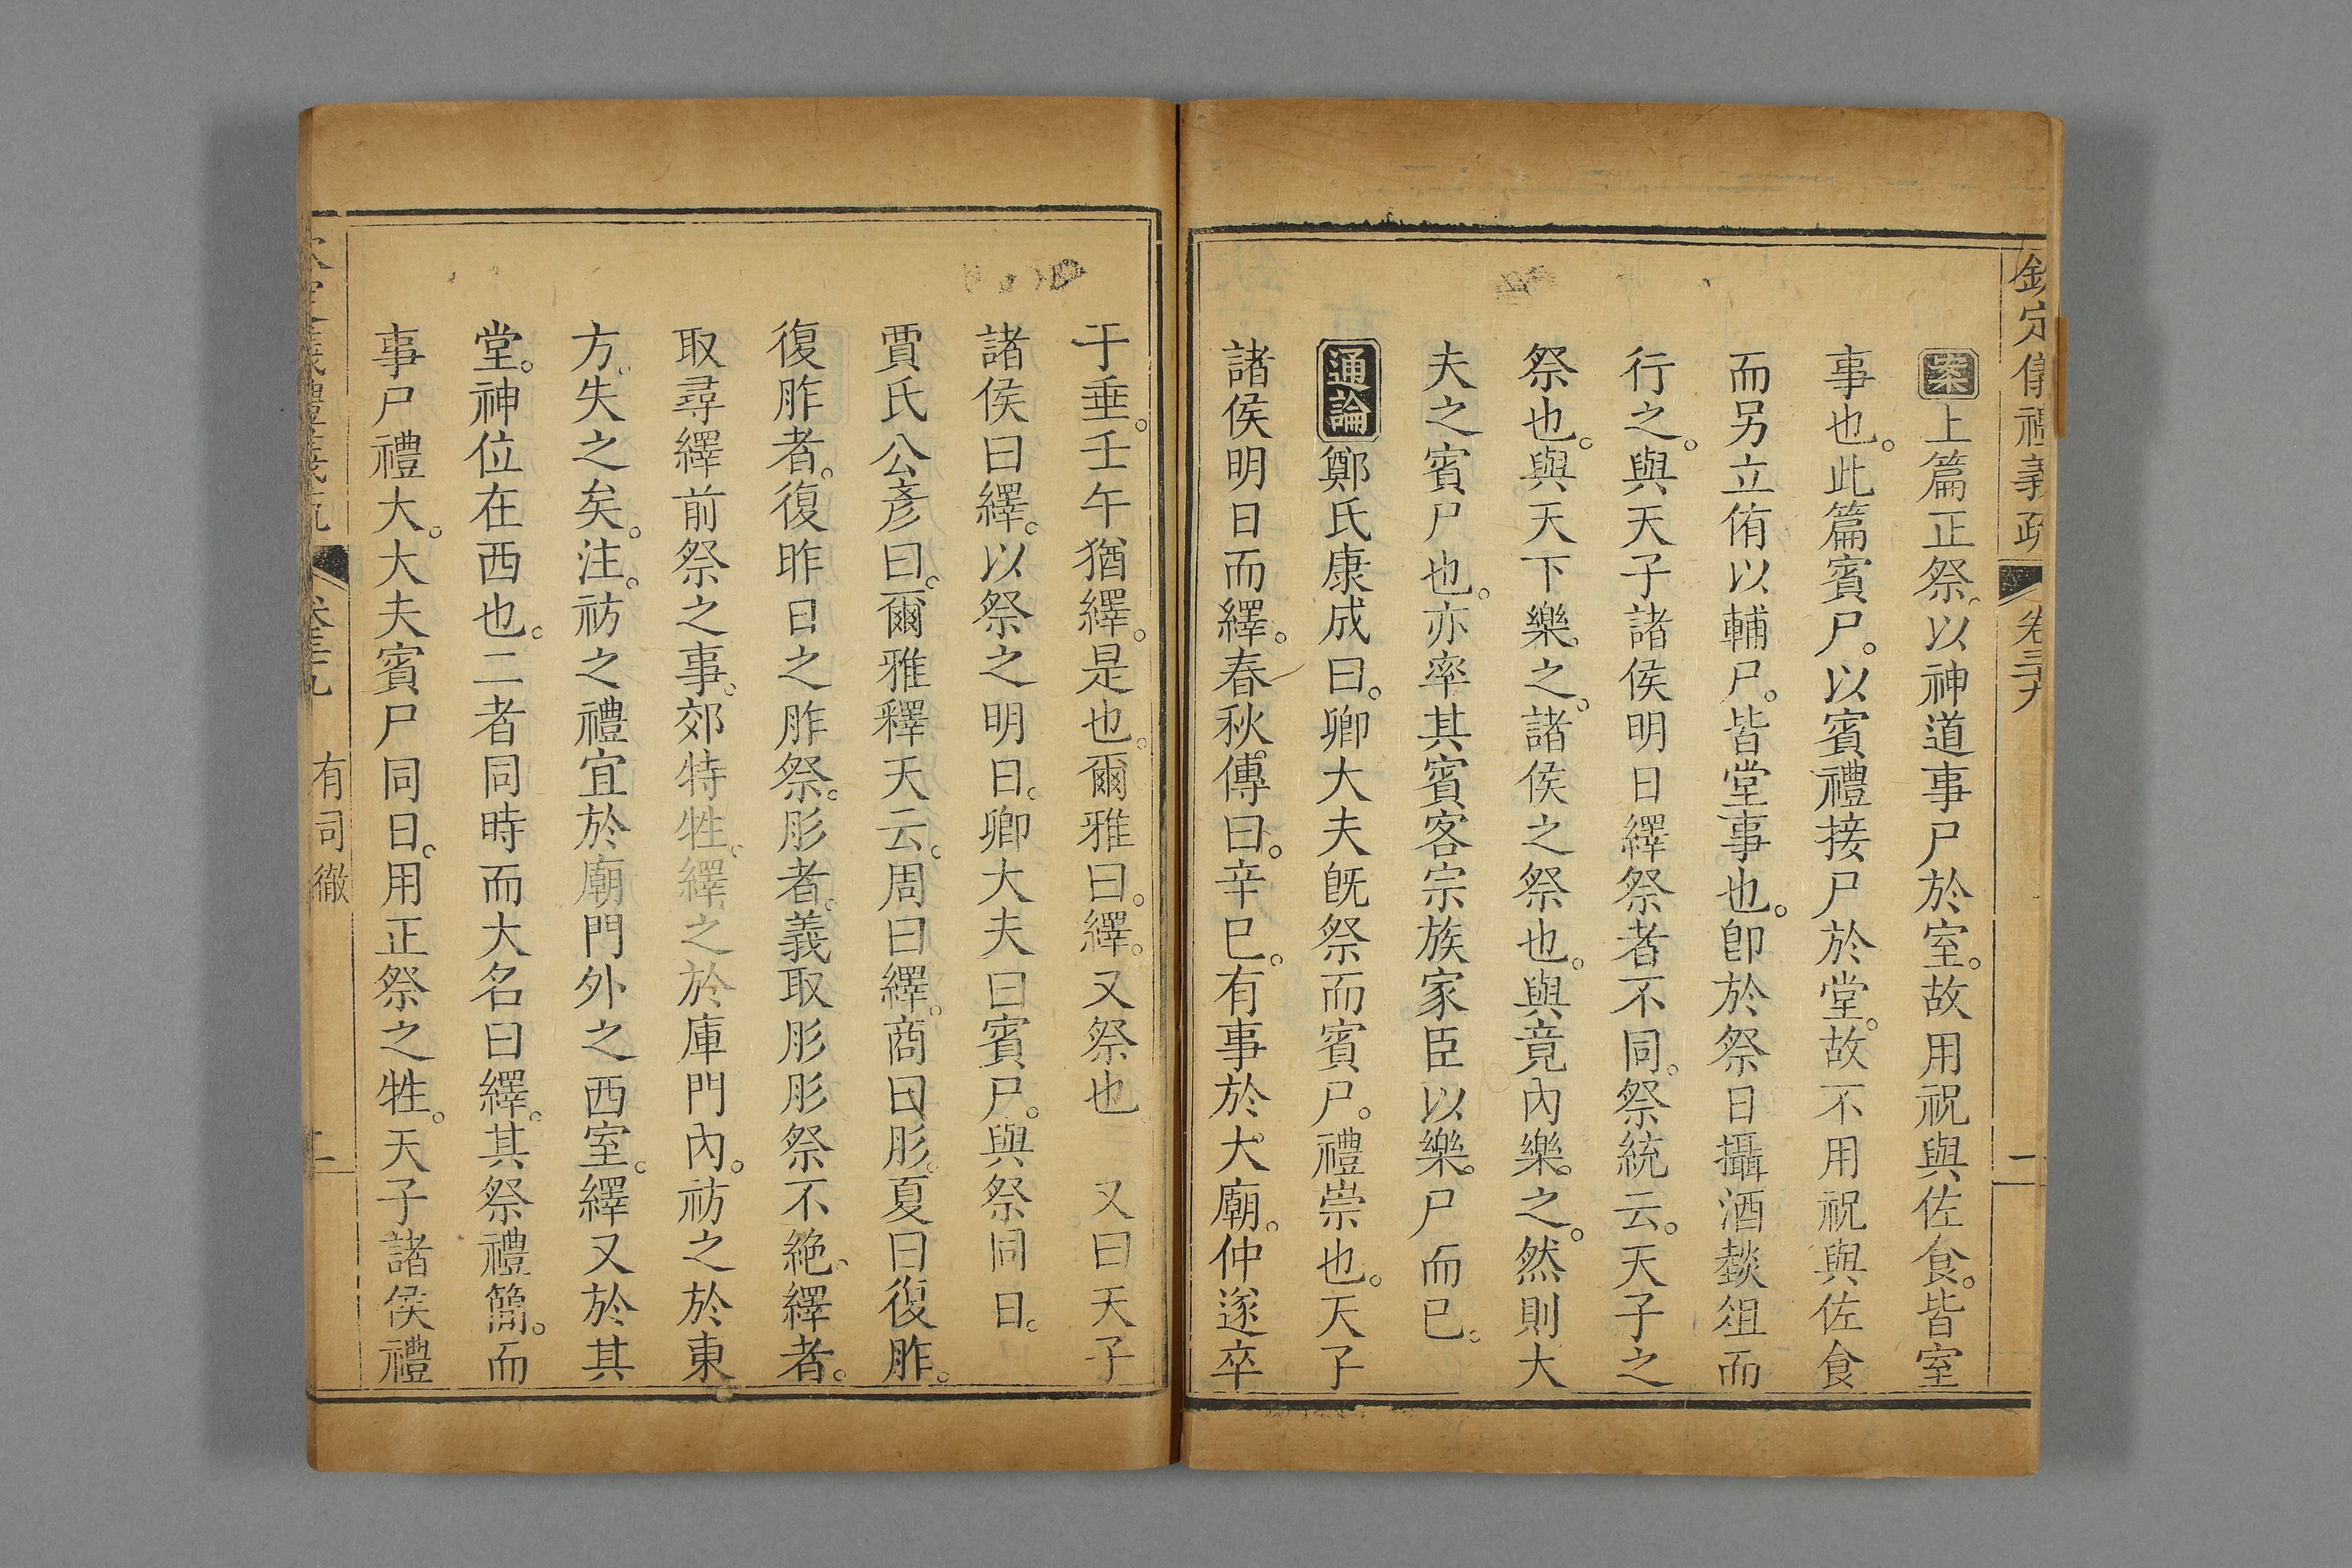 欽定儀禮義疏 卷三十九 二
案上篇正祭以神道事尸於室。故用祝與佐食。皆室
事也。此篇賓尸。以賓禮接尸於堂。故不用祝與佐食
而另立侑以輔尸。皆堂事也。卽於祭日攝酒燅俎而
行之。與天子諸侯明日繹祭者不同。祭統云。天子之
祭也。與天下樂之。諸侯之祭也。與竟內樂之。然則大
夫之賓尸也。亦率其賓客宗族家臣以樂尸而已。
通論鄭氏康成曰。卿大夫旣祭而賓尸。禮崇也。天子
諸侯明日而繹。春秋傳曰。辛巳。有事於大廟。仲遂卒
于垂。壬午猶繹。是也。爾雅曰。繹。又祭也 又曰天子
諸侯曰繹。以祭之明日。卿大夫曰賓尸。與祭同日。
賈氏公彥曰。爾雅釋天云。周曰繹。商曰肜。夏曰復胙。
復胙者。復昨日之胙祭。肜者。義取肜肜祭不絶。繹者。
取尋繹前祭之事。郊特牲。繹之於庫門內。祊之於東
方。失之矣。注。祊之禮宜於廟門外之西室。繹又於其
堂。神位在西也。二者同時而大名曰繹。其祭禮簡。而
事尸禮大。大夫賓尸同日。用正祭之牲。天子諸侯禮
義疏 卷三十九 有司徹 二